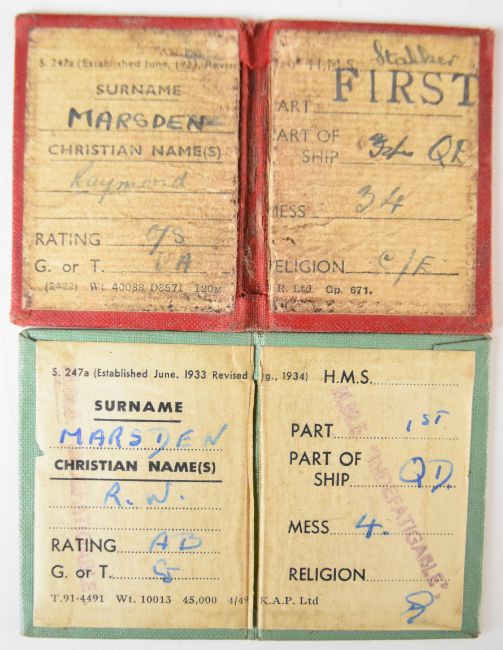 S. 247a (Established June, 1933 Revised 1934) H.M.S. Stalker
SURNAME
MARSDEN
CHRISTIAN NAME(S)
Raymond
RATING O/S
G. or T.
(2422) Wt. 40088 D8571 120M R. Ltd. Gp. 671.
FIRST
PART
PART OF
SHIP QD
MESS 34
RELIGION C/E
S. 247a (Established June, 1933 Revised Aug., 1934) H.M.S.
SURNAME
MARSDEN
CHRISTIAN NAME(S)
R. W.
RATING AB
G. or T. G
T.91-4491 Wt. 10013 45,000 4/4 K.A.P. Ltd
PART 1ST
PART OF
SHIP QD.
MESS 4.
RELIGION
H.M.S. "INDEFATIGABLE"